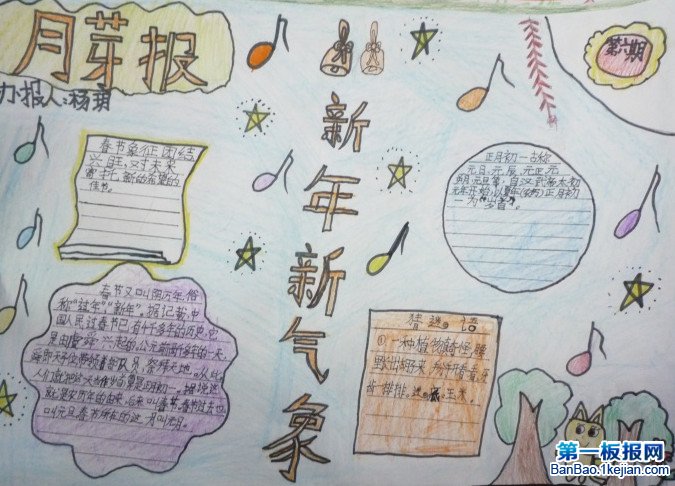 月芽报
办报人:杨
第六期
新年新气象
春节象征团结
兴旺,对未来
寄托,新的希望的
佳节。
正月初一古称
元日,元辰,元正,元
朔,元旦等,自汉武帝太初
元年开始,以夏年(农历)正月初
一为"岁首"。
春节又叫阴历年,俗
称"过年","新年"。据记载,中
国人民过春节已有4千多年的历史,它
是由虞舜兴起的。公元前两千多年的一天,
舜即天子位,带领着部队员,祭拜天地。从此
人们就把这天当作岁首,算是正月初一。据说这
就是农历年的由来,后来叫春节,春节过去也
叫元旦。春节所在的这一月叫元月。
猜迷语
①一种植物真奇怪,腰
里长出胡子来,
齿一排排。 玉米。
第一板报网
BanBao.1kejian.com